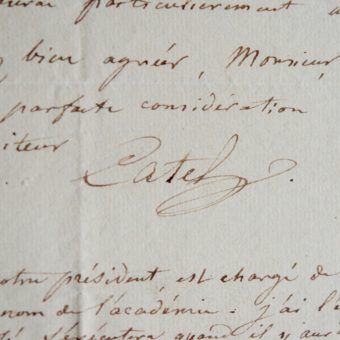 particulièrement
bien agréer, Monsieur
parfaite considération
iteur
Catel
otre président est chargé de
nom de l'académie. j'ai l'
quand il y